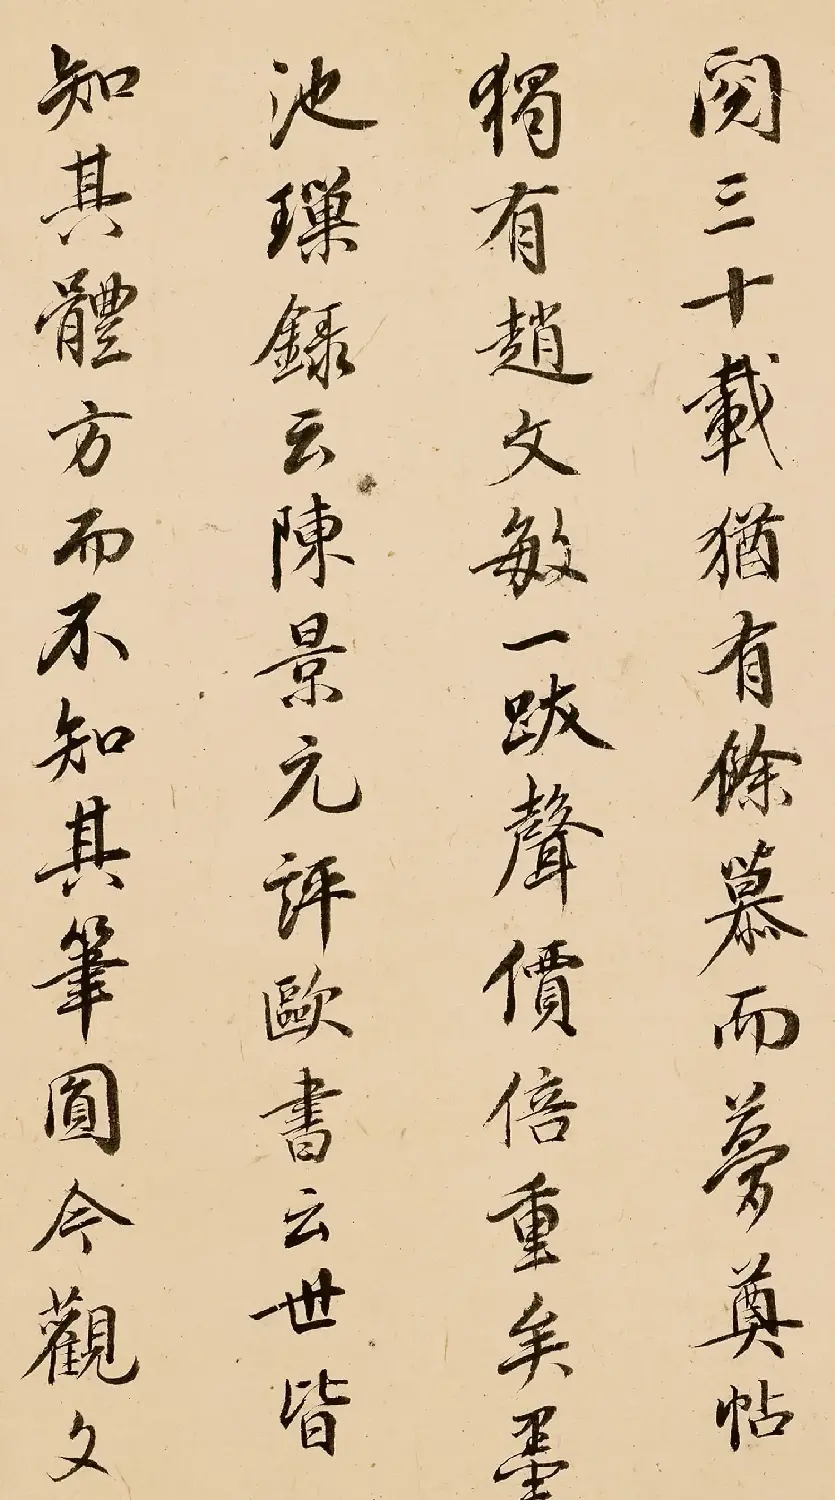 閱三十載猶有餘慕而夢奠帖
獨有趙文敏一跋聲價倍重矣墨
池璅錄云陳景元評歐書云世皆
知其體方而不知其筆圓今觀文